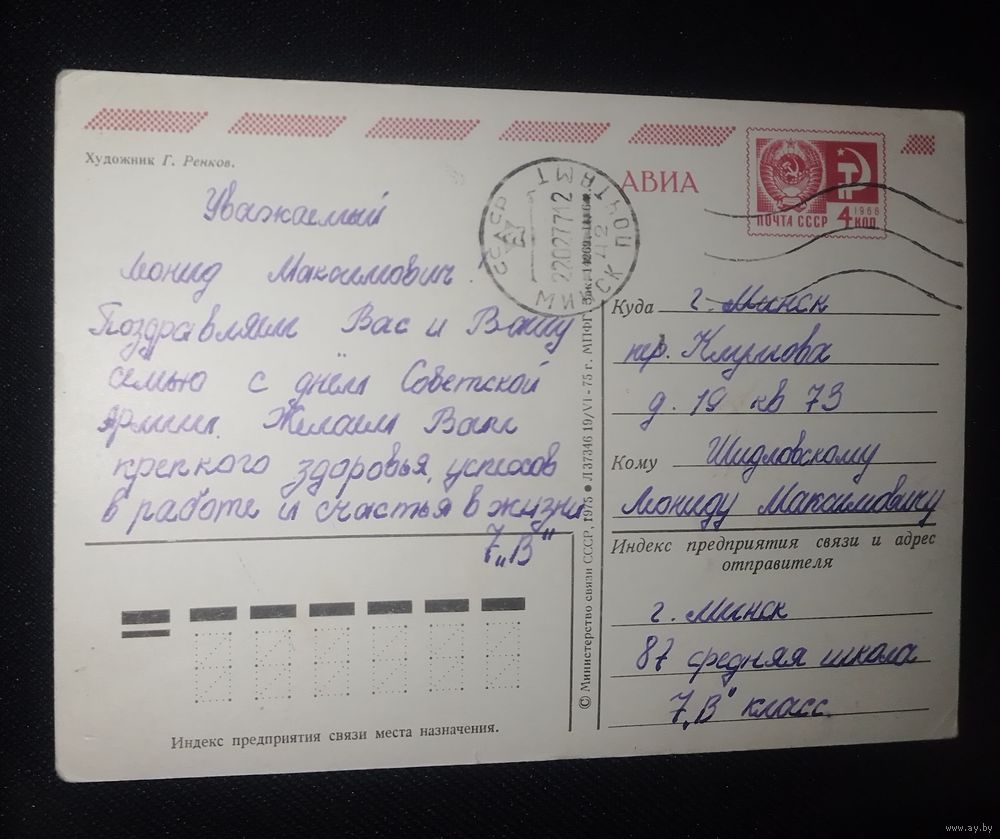 Художник Г. Ренков.
АВИА
ПОЧТА СССР
4 КОП
1966
МИНСК ПОЧТАМТ
22027712
Уважаемый
Леонид Максимович.
Поздравляем Вас и Вашу
семью с днём Советской
Армии. Желаем Вам
крепкого здоровья, успехов
в работе и счастья в жизни
7 „В"
© Министерство связи СССР, 1975 ● Л 37346 19/VI - 75 г. МПФГ.
Куда г. Минск
пер.
д. 19 кв 73
Кому Шидловскому
Леониду Максимовичу
Индекс предприятия связи и адрес
отправителя
г. Минск
87 средняя школа
7 „В" класс.
Индекс предприятия связи места назначения.
www.ay.by